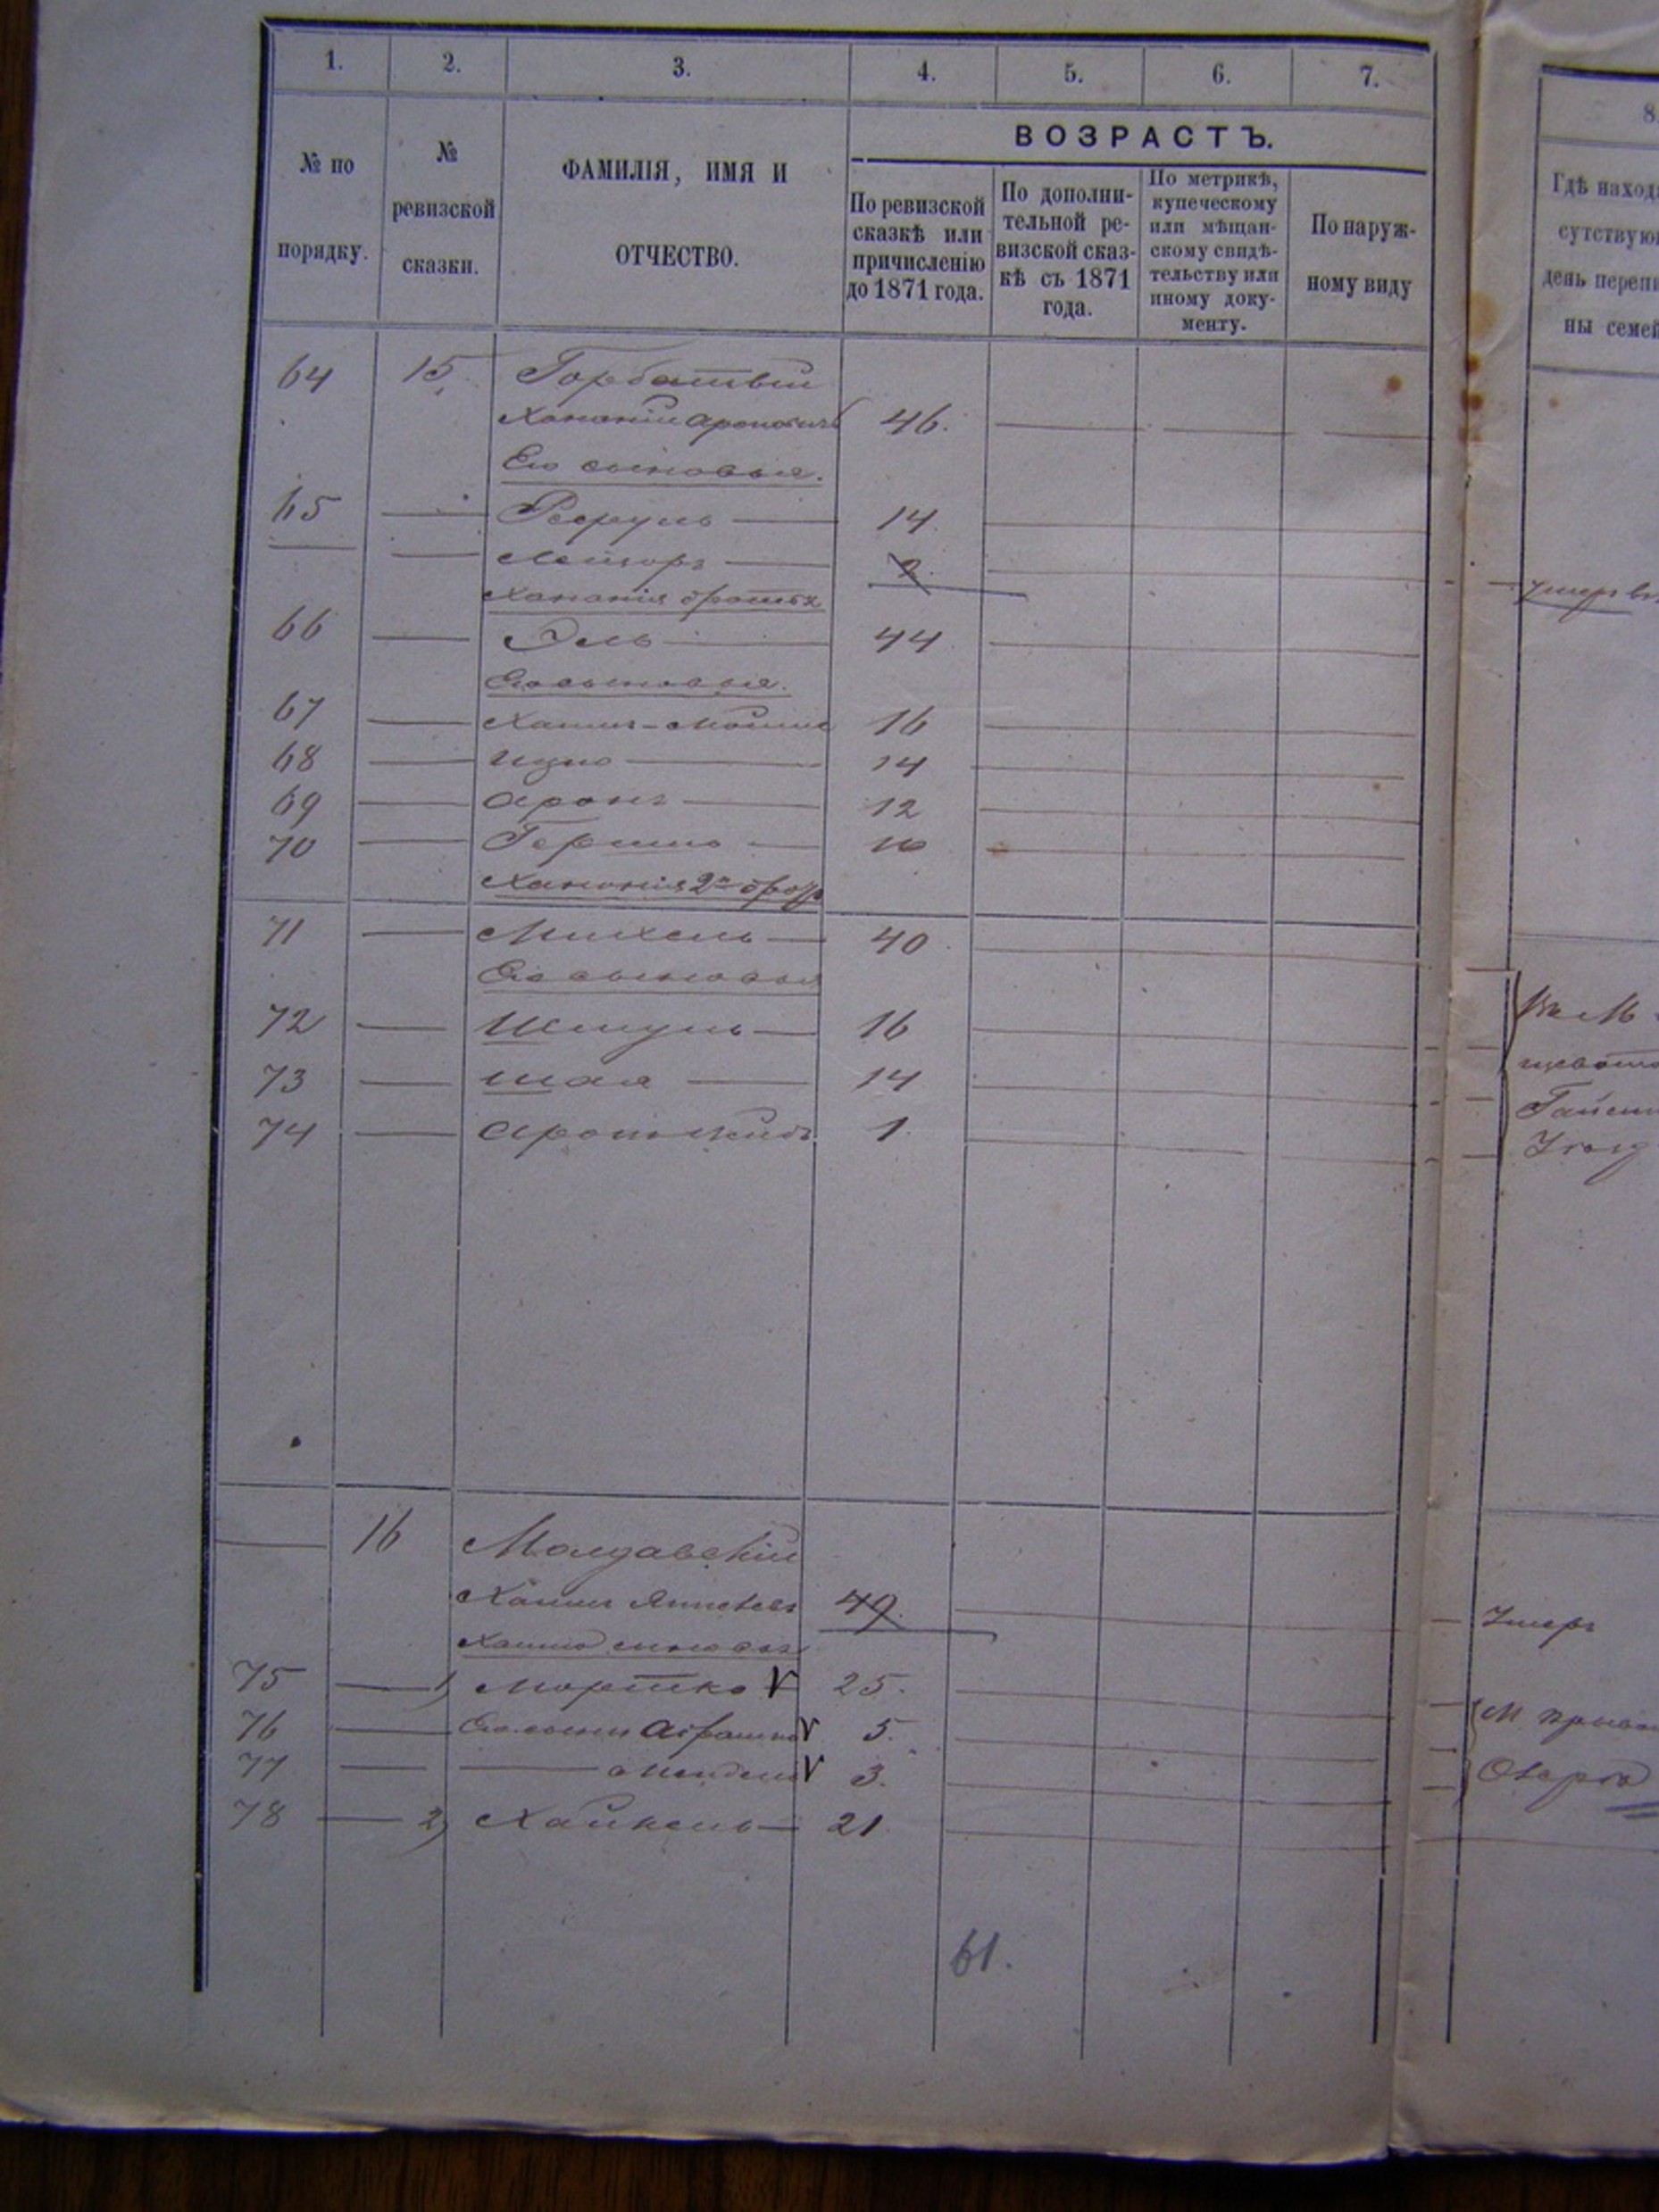 1. 2. 3. 4. 5. 6. 7.
8.
ВОЗРАСТЪ.
№ по порядку.
№ ревизской сказки.
ФАМИЛІЯ, ИМЯ И ОТЧЕСТВО.
По ревизской сказкѣ или причисленію до 1871 года.
По дополнительной ревизской сказкѣ съ 1871 года.
По метрикѣ, купеческому или мѣщанскому свидѣтельству или иному документу.
По наружному виду
Гдѣ наход
сутствую
день переп
ны семей
64 15. Горбатый
Хананій Ароновичъ 46.
Его сыновья.
65 Сруль 14.
Лейзоръ 2.
Хананія братья
66 Эль 44
Его сыновья.
67 Хаимъ-Мошко 16
68 Ицко 14
69 Аронъ 12
70 Гершко 10
Ханонія 2й братъ
71 Михель 40
Его сыновья
72 Шмуль 16
73 Шая 14
74 Аронъ 1.
Гайсин
16 Молдавскій
Хаимъ 49. Умеръ
Хаима сыновья
75 1) Мортко V 25.
76 Его сыны Абрамко V 5.
77 Мендель V 3.
78 2) Хайкель 21
61.